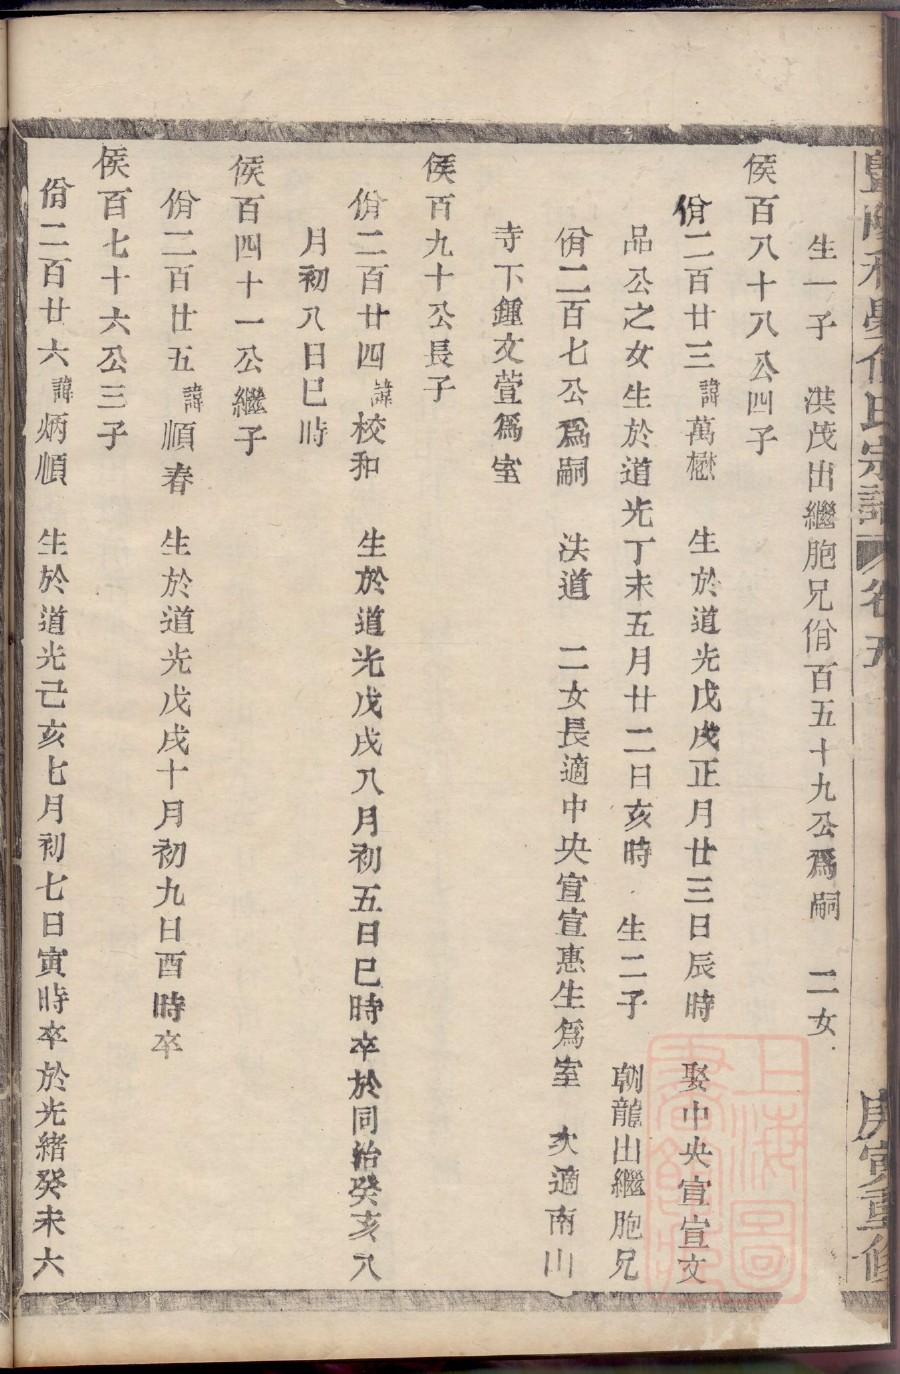 生一子 洪茂出繼胞兄佾百五十九公爲嗣 二女
侯百八十八公四子
佾二百廿三諱萬懋 生於道光戊戌正月廿三日辰時 娶中央宣宣文
品公之女生於道光丁未五月廿二日亥時 生二子 朝龍出繼胞兄
佾二百七公爲嗣 洪道 二女長適中央宣宣惠生爲室 次適南山
寺下鍾文萱爲室
侯百九十公長子
佾二百廿四諱校和 生於道光戊戌八月初五日巳時卒於同治癸亥八
月初八日巳時
侯百四十一公繼子
佾二百廿五諱順春 生於道光戊戌十月初九日酉時卒
侯百七十六公三子
佾二百廿六諱炳順 生於道光己亥七月初七日寅時卒於光緒癸未六
氏宗譜 卷五 庚寅重修
上海圖書館藏